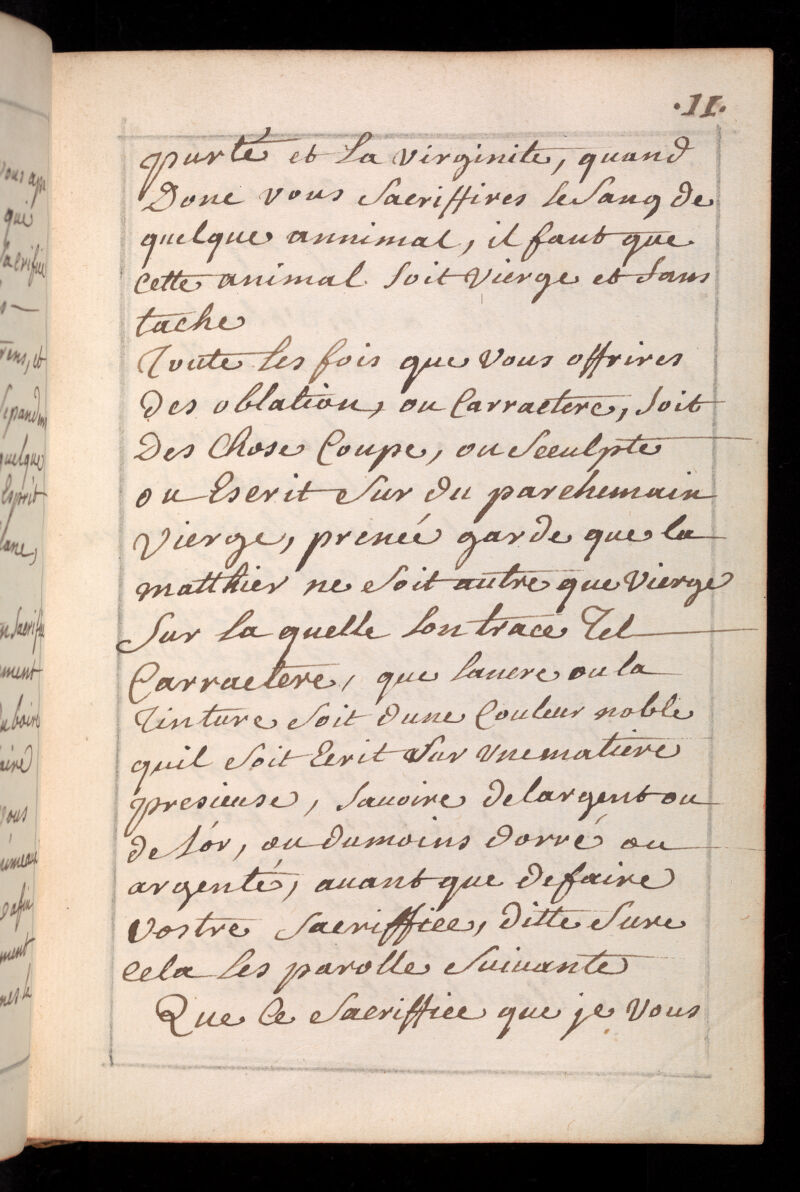 ·11·
purté et La virginite, quand
Donc vous Sacriffires le Sang de
quelque annimal, il faut que
cette animal Soit Vierge et Sans
tache
Toute les fois que vous offrires
des oblation, ou Carractere, Soit
Des Chose Coupe, ou Sculpte
ou Escrit Sur du parchemain
Vierge, preneé garde que la
matthier ne Soit autre que Vierge
Sur la quelle lon tracé Tel
Carractere, que lancre ou la
Tinture Soit dune Couleur noble
quil Soit Ecrit Sur vne matiere
presieuse, Sauoire delargent ou
de lór, ou dumoins dorré ou
argenté, auant que defaire
Vostre Sacriffice, ditte Sure
Cela les parolle Suivante
Que Ce Sacriffice que je Vous
ous ap
qui
Sacrifie
rens, et
quelque
Esprit
lane,
n Sacrifi
ement
du boire
aire
vous
afin
ment